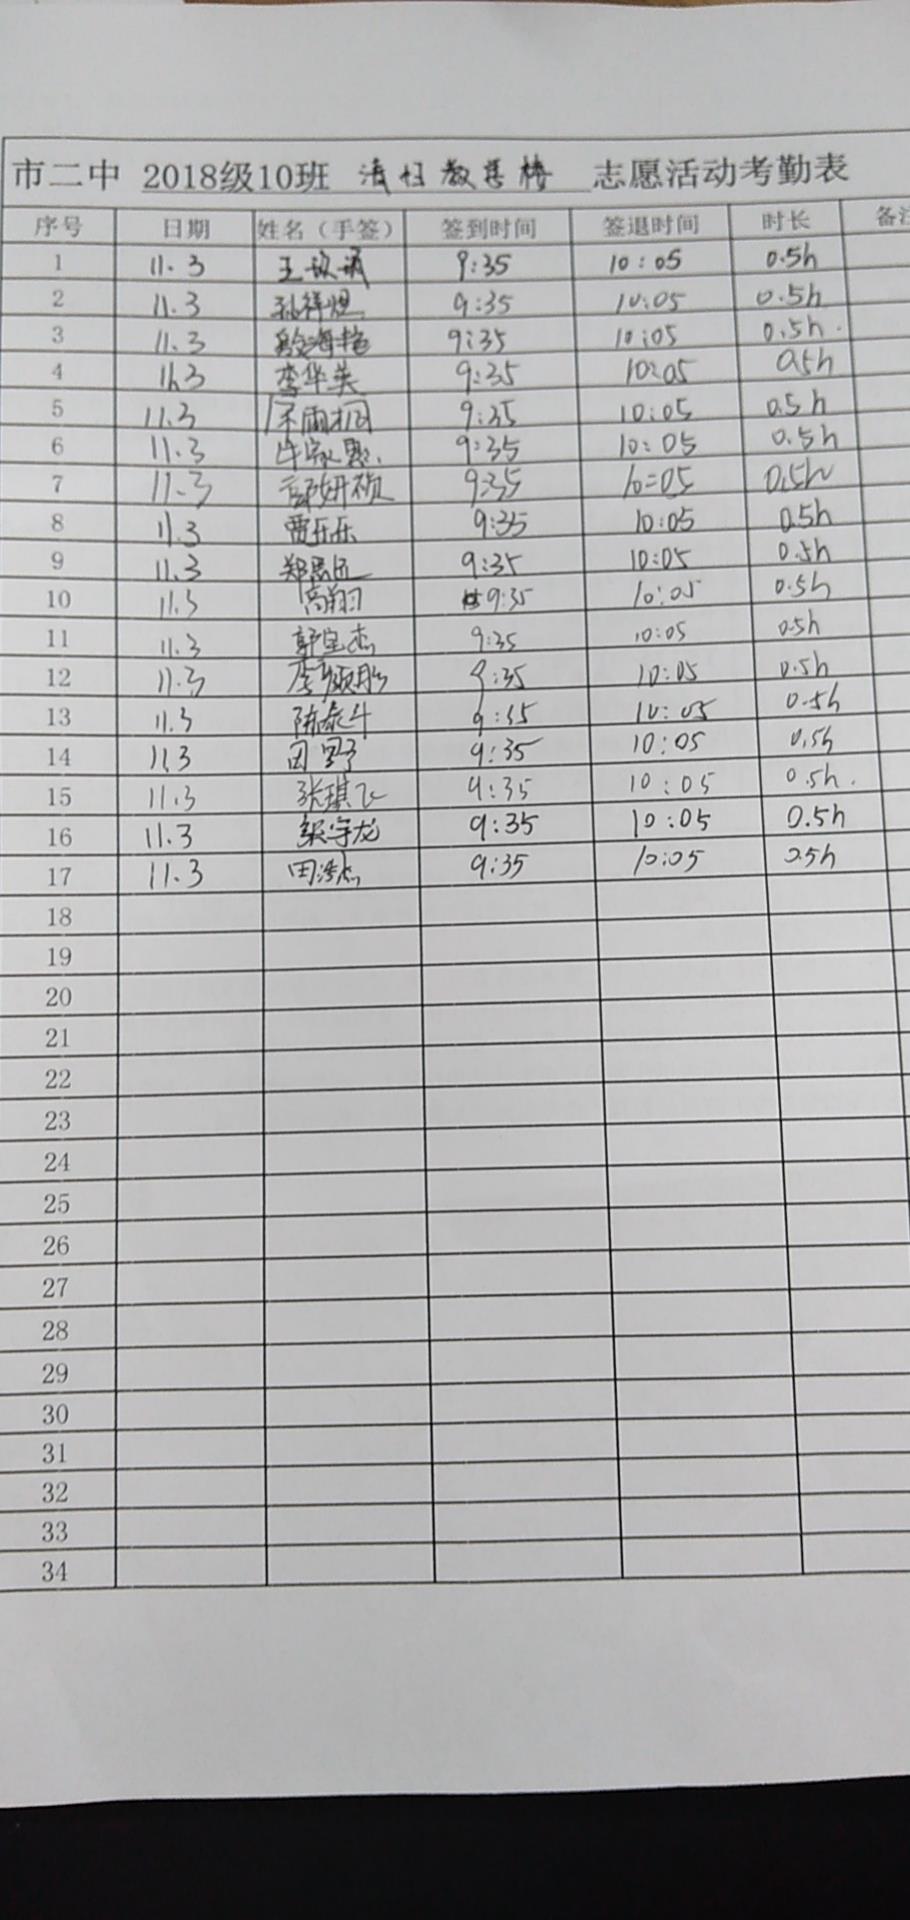 市二中 2018级10班 清扫教学楼 志愿活动考勤表
序号 日期 姓名（手签） 签到时间 签退时间 时长 备注
1 11.3 王 9:35 10:05 0.5h
2 11.3 孙祥煜 9:35 10:05 0.5h
3 11.3 殷海艳 9:35 10:05 0.5h.
4 11.3 李华美 9:35 10:05 0.5h
5 11.3 9:35 10:05 0.5h
6 11.3 牛家 9:35 10:05 0.5h
7 11.3 妍祯 9:35 10:05 0.5h
8 11.3 贾乐乐 9:35 10:05 0.5h
9 11.3 郑思远 9:35 10:05 0.5h
10 11.3 高翔 9:35 10:05 0.5h
11 11.3 郭宝杰 9:35 10:05 0.5h
12 11.3 李颂 9:35 10:05 0.5h
13 11.3 陈泰斗 9:35 10:05 0.5h
14 11.3 田野 9:35 10:05 0.5h
15 11.3 张琪飞 9:35 10:05 0.5h.
16 11.3 梁宇龙 9:35 10:05 0.5h
17 11.3 田浩杰 9:35 10:05 0.5h
18
19
20
21
22
23
24
25
26
27
28
29
30
31
32
33
34